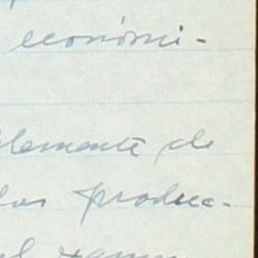 económi-
lemente de
los produc-